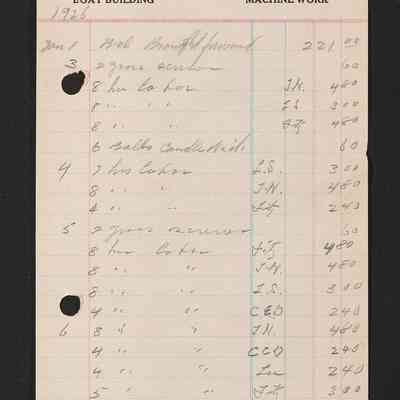 BUILDING MACHINE WORK
1926
Jan 1 Bal Brought forward 221 00
3 2 gross screws 60
8 hrs labor J.N. 4 80
8 " " I.S. 3 00
8 " " 4 80
6 Bolts 60
4 7 hrs labor I.S. 3 00
8 " " J.N. 4 80
4 " " 2 40
5 2 gross screws 60
8 hrs labor 4 80
8 " " J.N. 4 80
8 " " I.S. 3 00
4 " " CEO 2 40
6 8 " " J.N. 4 80
4 " " CEO 2 40
4 " " 2 40
5 " " 3 00